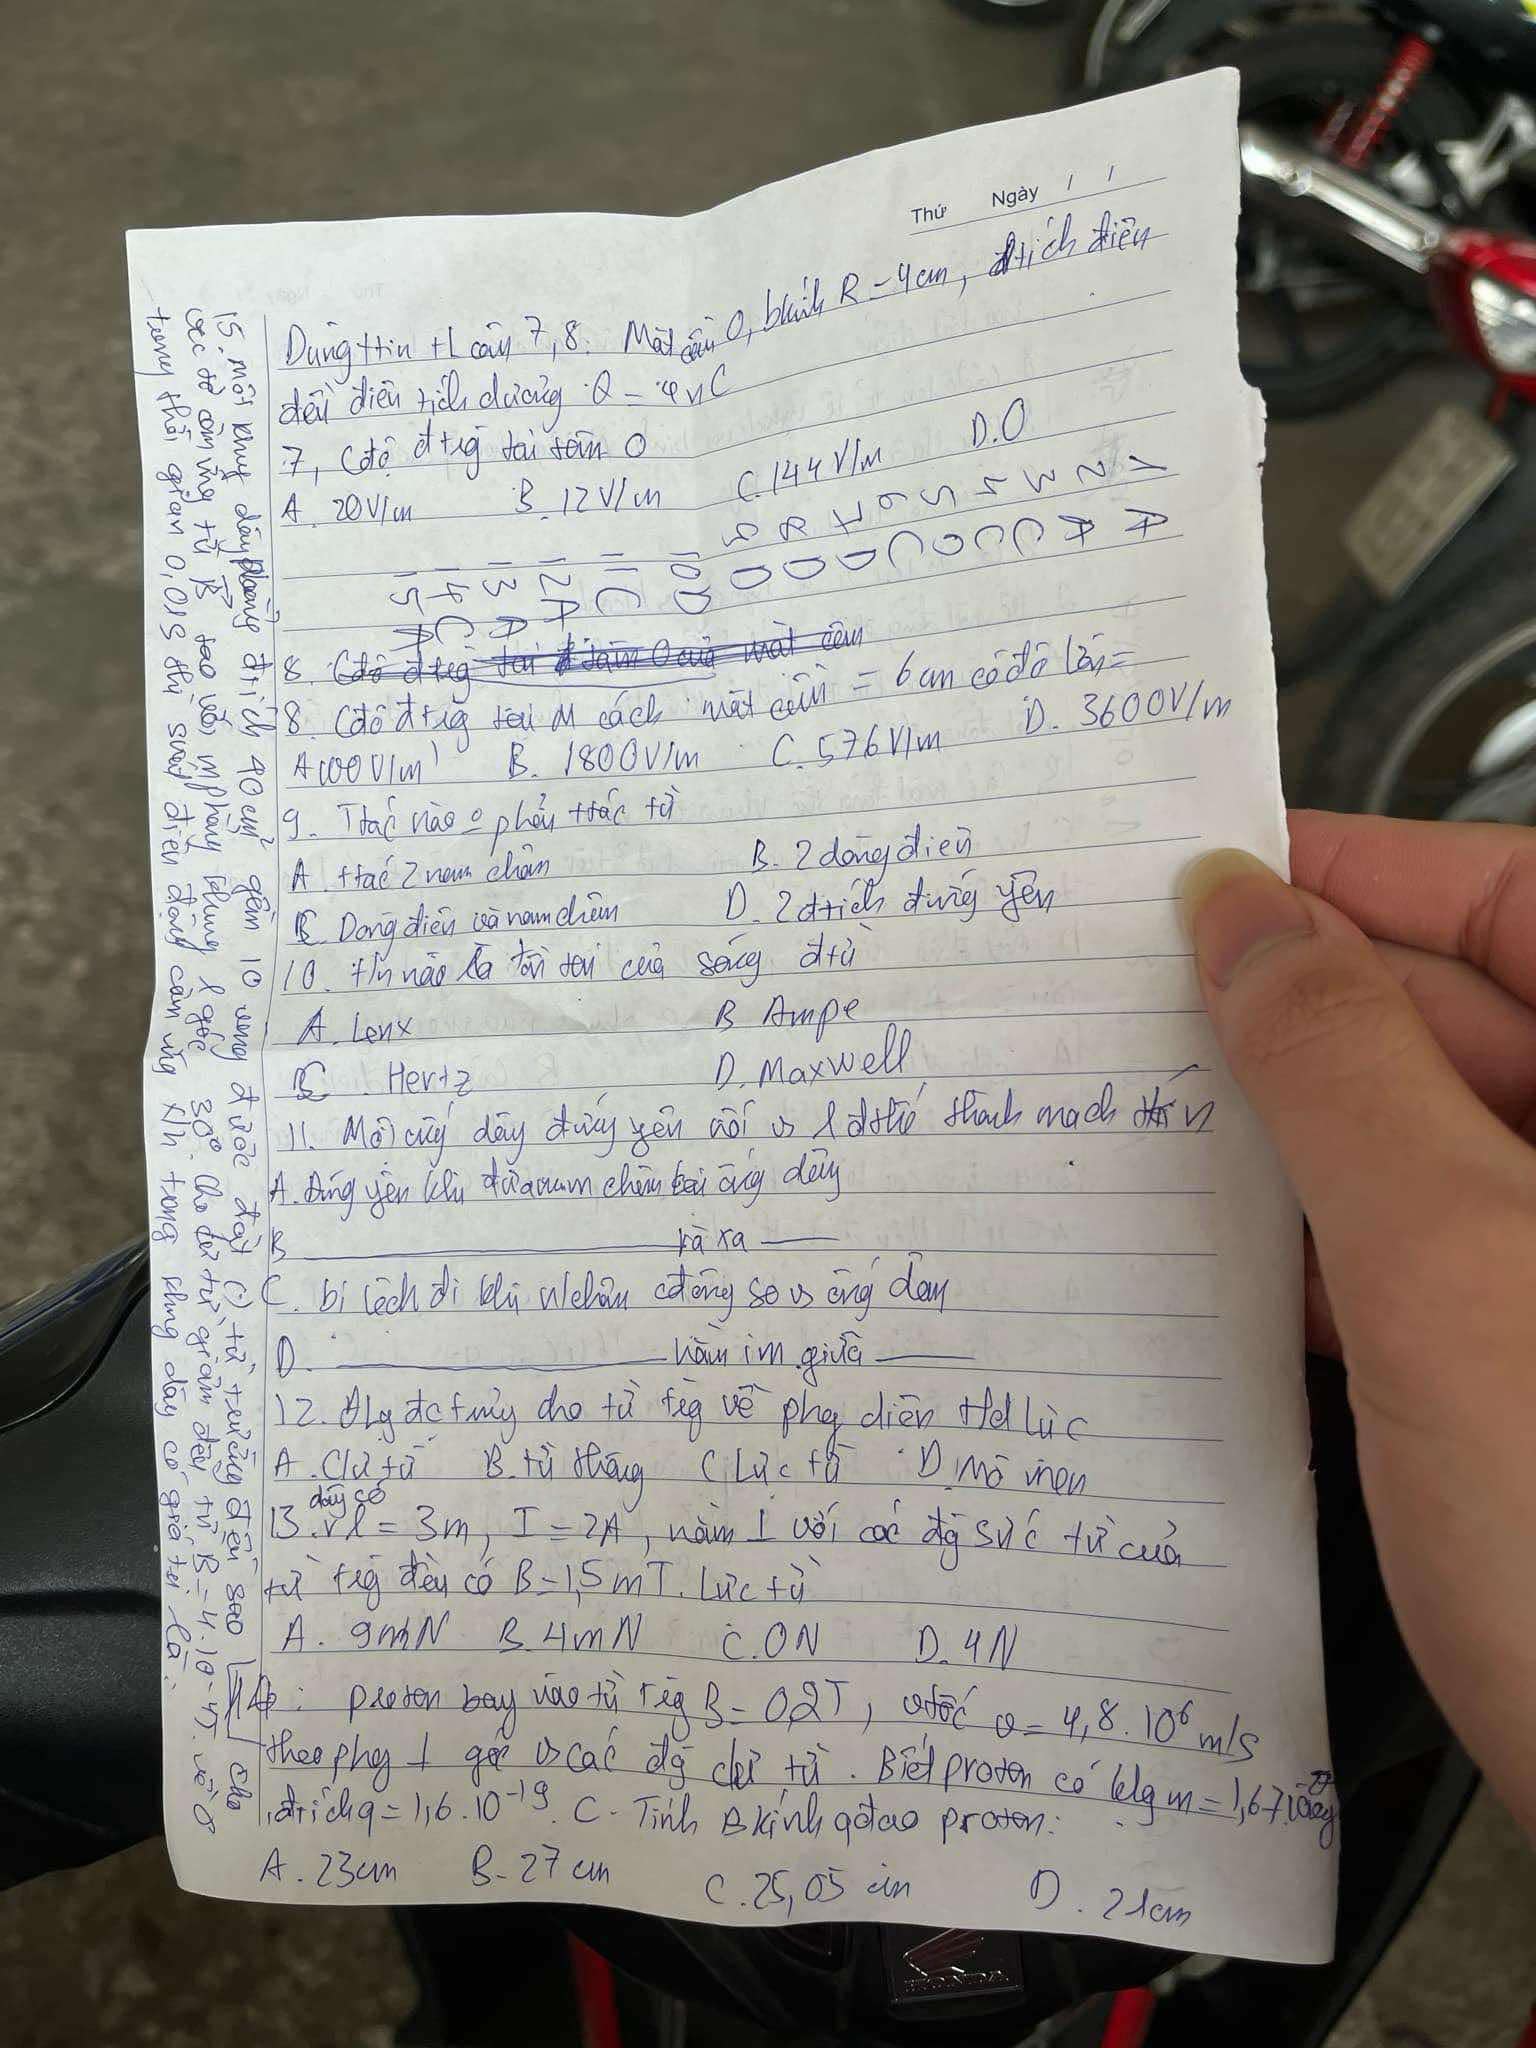 Thứ Ngày / /
Dùng ttin + L câu 7, 8. Mặt cầu O, bkính R = 4cm, đtích điện
đều điện tích dương Q = 4nC
7, Cđộ đtrg tại tâm O
A. 20V/m B. 12V/m C. 144V/m D. O
8. Cđộ đtrg tại M cách mặt cầu = 6cm có độ lớn =
B. 1800V/m C. 576V/m D. 3600V/m
9. Ttác nào o phải ttác từ
A. ttác 2 nam châm B. 2 dòng điện
C. Dòng điện và nam châm D. 2 đtích đứng yên
10. tìm ra sự tồn tại của sóng đtừ
A. Lenx B. Ampe
C. Hertz D. Maxwell
11. Mỗi ứng dây đứng yên nối v 1 đthế thành mạch
A. Đứng yên khi đưa nam châm lại ống dây
B ra xa
C. bị lệch đi khi n/châm cđộng so v ống dây
D. nằm im giữa
12. Đlg đctrưng cho từ trg về phg diện tdlực
A. C/ư từ B. từ thông C lực từ D. Mô men
13. dây có l = 3m, I = 2A, nằm ⊥ với các đg sức từ của
từ trg đều có B = 1,5mT. lực từ
A. 9mN B. 4mN C. ON D. 4N
proton bay vào từ trg B = 0,2T, vtốc v = 4,8.10⁶ m/s
theo phg ⊥ góc v các đg c/ư từ. Biết proton có klg m = 1,67.10
đtích q = 1,6.10-19. C. Tính bkính qđạo proton:
A. 23cm B. 27cm C. 25,05 cm D. 21cm
15. Một khug dây phẳng đtích 40cm² gồm 10 vòng được đặt (.) từ trường điều sao cho
véc tơ cảm ứng từ B⃗ tạo với mphẳng khung 1 góc 30°. Cho cư từ giảm đều từ B = 4.10-4T. về 0
trong thời gian 0,01s thì suất điện động cảm ứng x/h trong khug dây có giá trị là:
HONDA